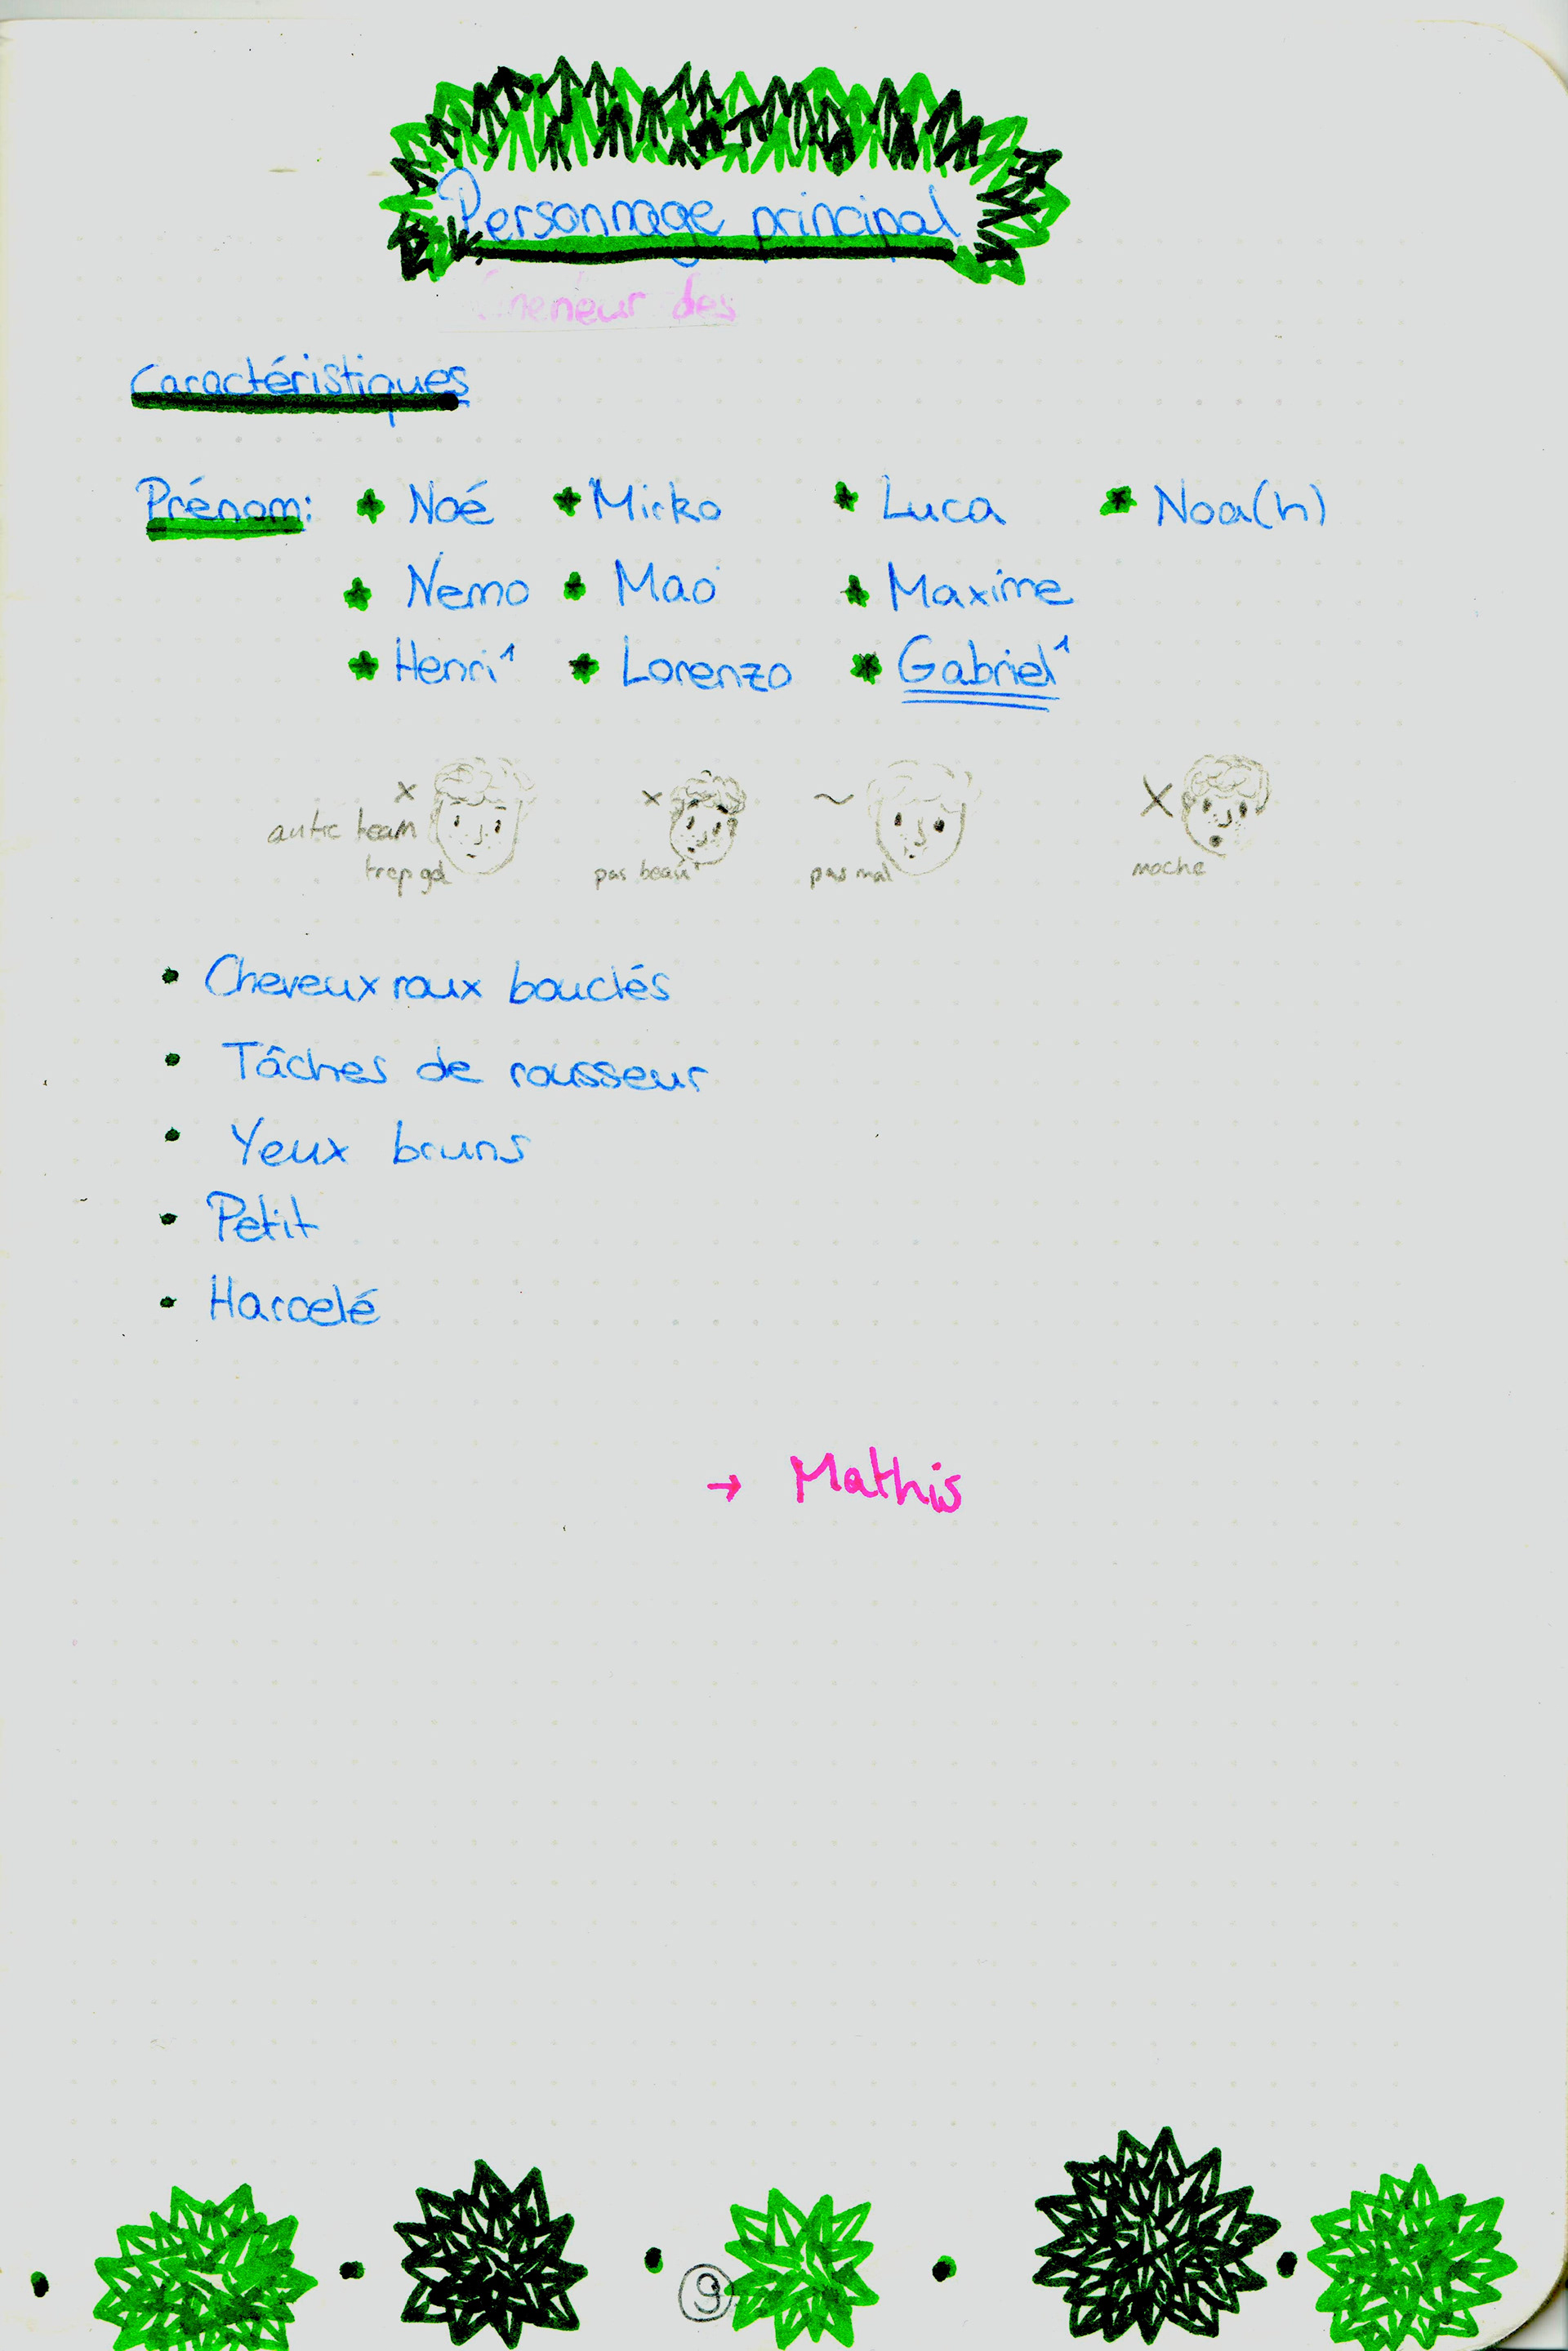 Personnage principal
des
Caractéristiques
Prénom: Noé Mirko Luca Noa(h)
Nemo Mao Maxime
Henri¹ Lorenzo Gabriel¹
x x ~ X
team
trop pas beau pas mal moche
Cheveux roux bouclés
Tâches de rousseur
Yeux bruns
Petit
Harcelé
→ Mathis
9